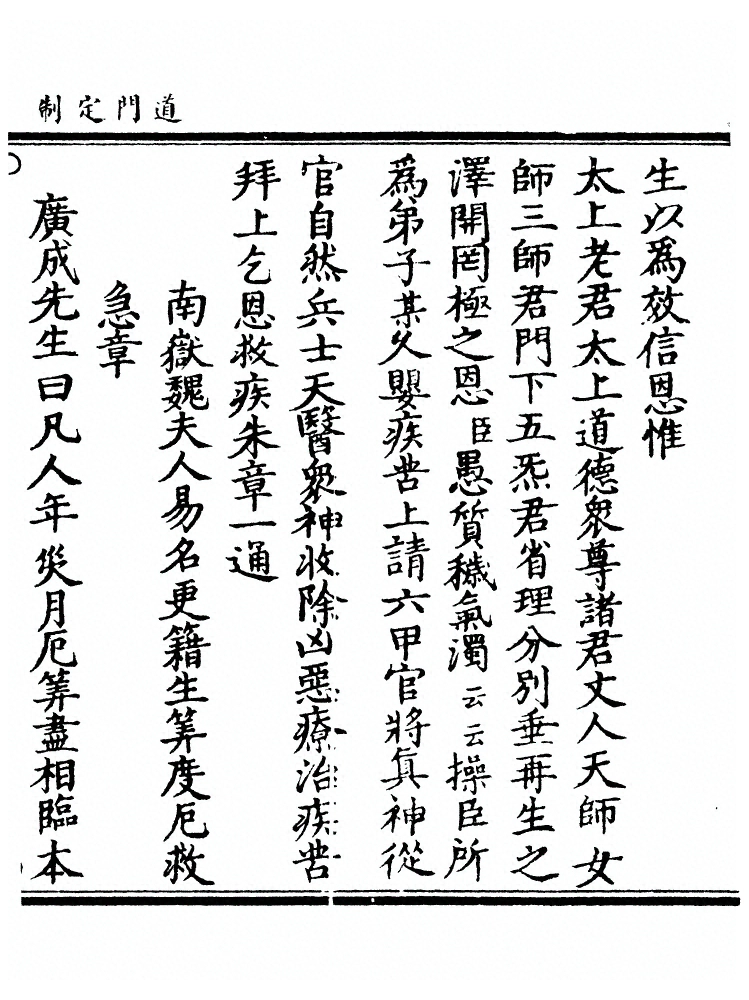 道門定制
生以為效信恩惟
太上老君太上道德衆尊諸君丈人天師女
師三師君門下五炁君省理分別垂再生之
澤開罔極之恩臣愚質穢氣濁云云操臣所
為弟子某久嬰疾苦上請六甲官將眞神從
官自然兵士天醫衆神收除凶惡療治疾苦
拜上乞恩救疾朱章一通
南嶽魏夫人易名更籍生筭度厄救
急章
廣成先生曰凡人年災月厄筭盡相臨本